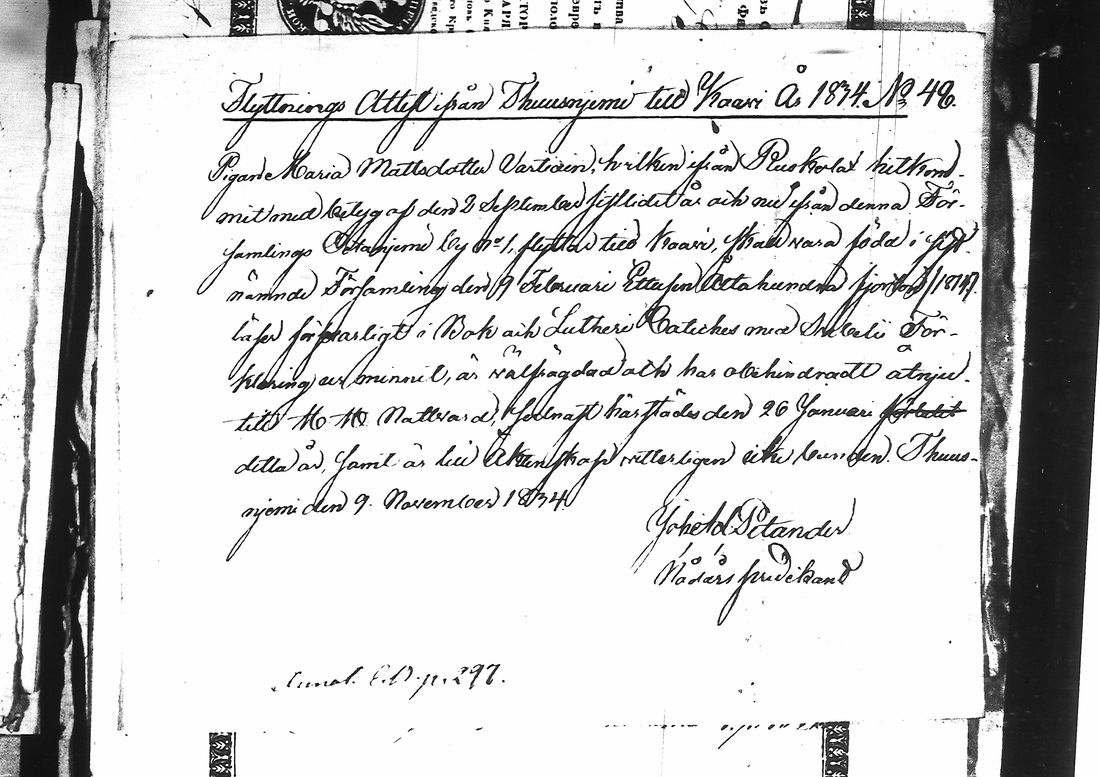 Flyttnings Attest ifrån Thuusnjemi till Kaavi År 1834. No 48.
Pigan Maria Mattsdotter Vartiain, hvilken ifrån Ruskola hitkom-
mit med betyg af den 2 September sistledit år och nu ifrån denna För-
samlings by No 1, flyttar till Kaavi, skall vara född i sist-
nämnde Församling den 9 Februari Ettusen Åttahundra fjorton /1814/.
läser försvarligt i Bok och Lutheri Catiches med Svebelii För-
klaring ur minnit, är välfrägdad och har obehindradt åtnju-
tit H. H. Nattvard, sednast härstädes den 26 Januari förledit
detta år, samt är till Äktenskap vitterligen icke bunden. Thuus-
njemi den 9. November 1834.
Petander
Nådårs predikant
E.D. p. 297.